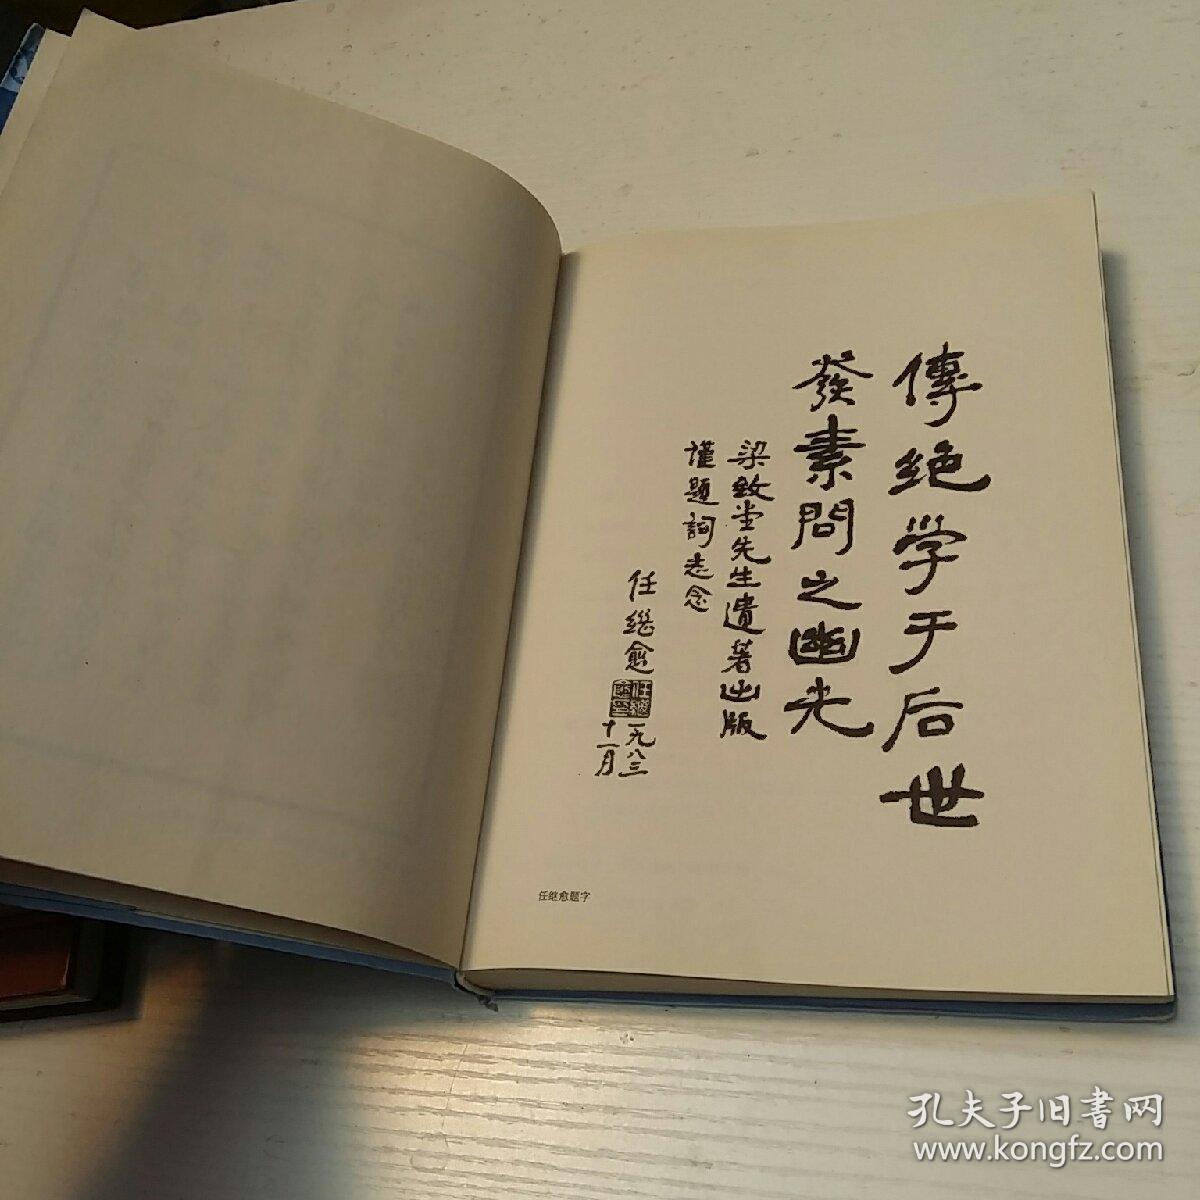 傳绝学于后世
發素問之幽光
梁致堂先生遺著出版
謹題詞志念
任继愈
一九八三
十一月
任继愈题字
孔夫子旧書网
www.kongfz.com